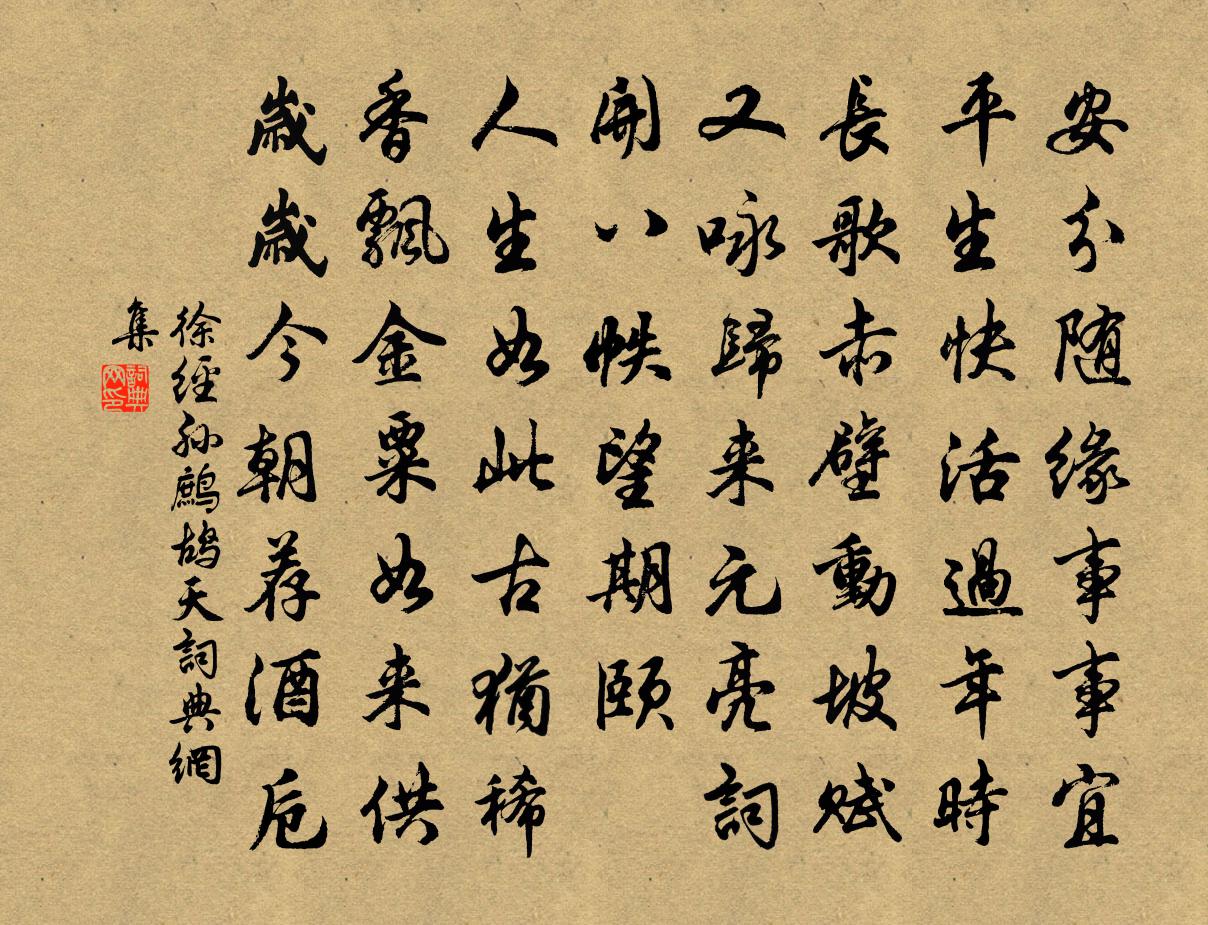 安分随緣事事宜
平生快活過年時
長歌赤壁動坡賦
又咏歸来元亮詞
開八帙望期頤
人生如此古猶稀
香飄金粟如来供
歳歳今朝荐酒卮
徐經孙鷓鴣天詞典網
集
詞典网印